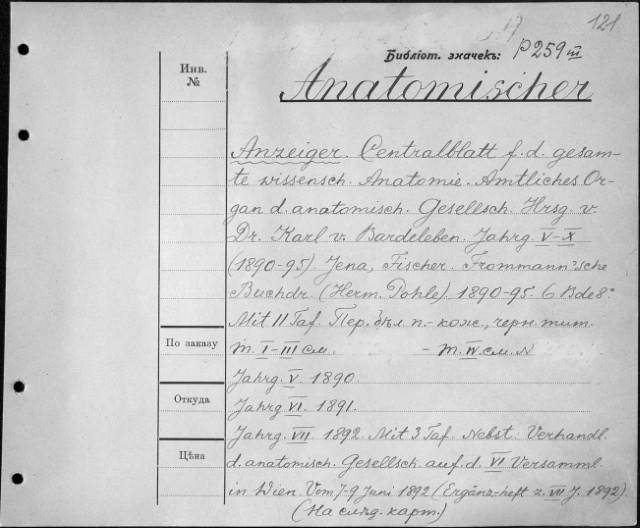 121
Библіот. значекъ: P259 III
Инв. №
Anatomischer
Anzeiger. Centralblatt f. d. gesam-
te wissensch. Anatomie. Amtliches Or-
gan d. anatomisch. Gesellsch. Hrsg. v.
Dr. Karl v. Bardeleben. Jahrg. V-X
(1890-95). Jena, Fischer. Frommann'sche
Buchdr. (Herm. Pohle) 1890-95. 6 Bde 8°
Mit 11 Taf. Пер. бѣл. п.-кож., черн. тит.
По заказу
т. I-III см. - т. IV см. N
Jahrg. V. 1890.
Откуда
Jahrg. VI. 1891.
Jahrg. VII. 1892. Mit 3 Taf. Nebst: Verhandl.
Цѣна
d. anatomisch. Gesellsch. auf. d. VI Versamml.
in Wien. Vom 7-9 Juni 1892 (Ergänz-heft z. VII J. 1892).
(На слѣд. карт.)